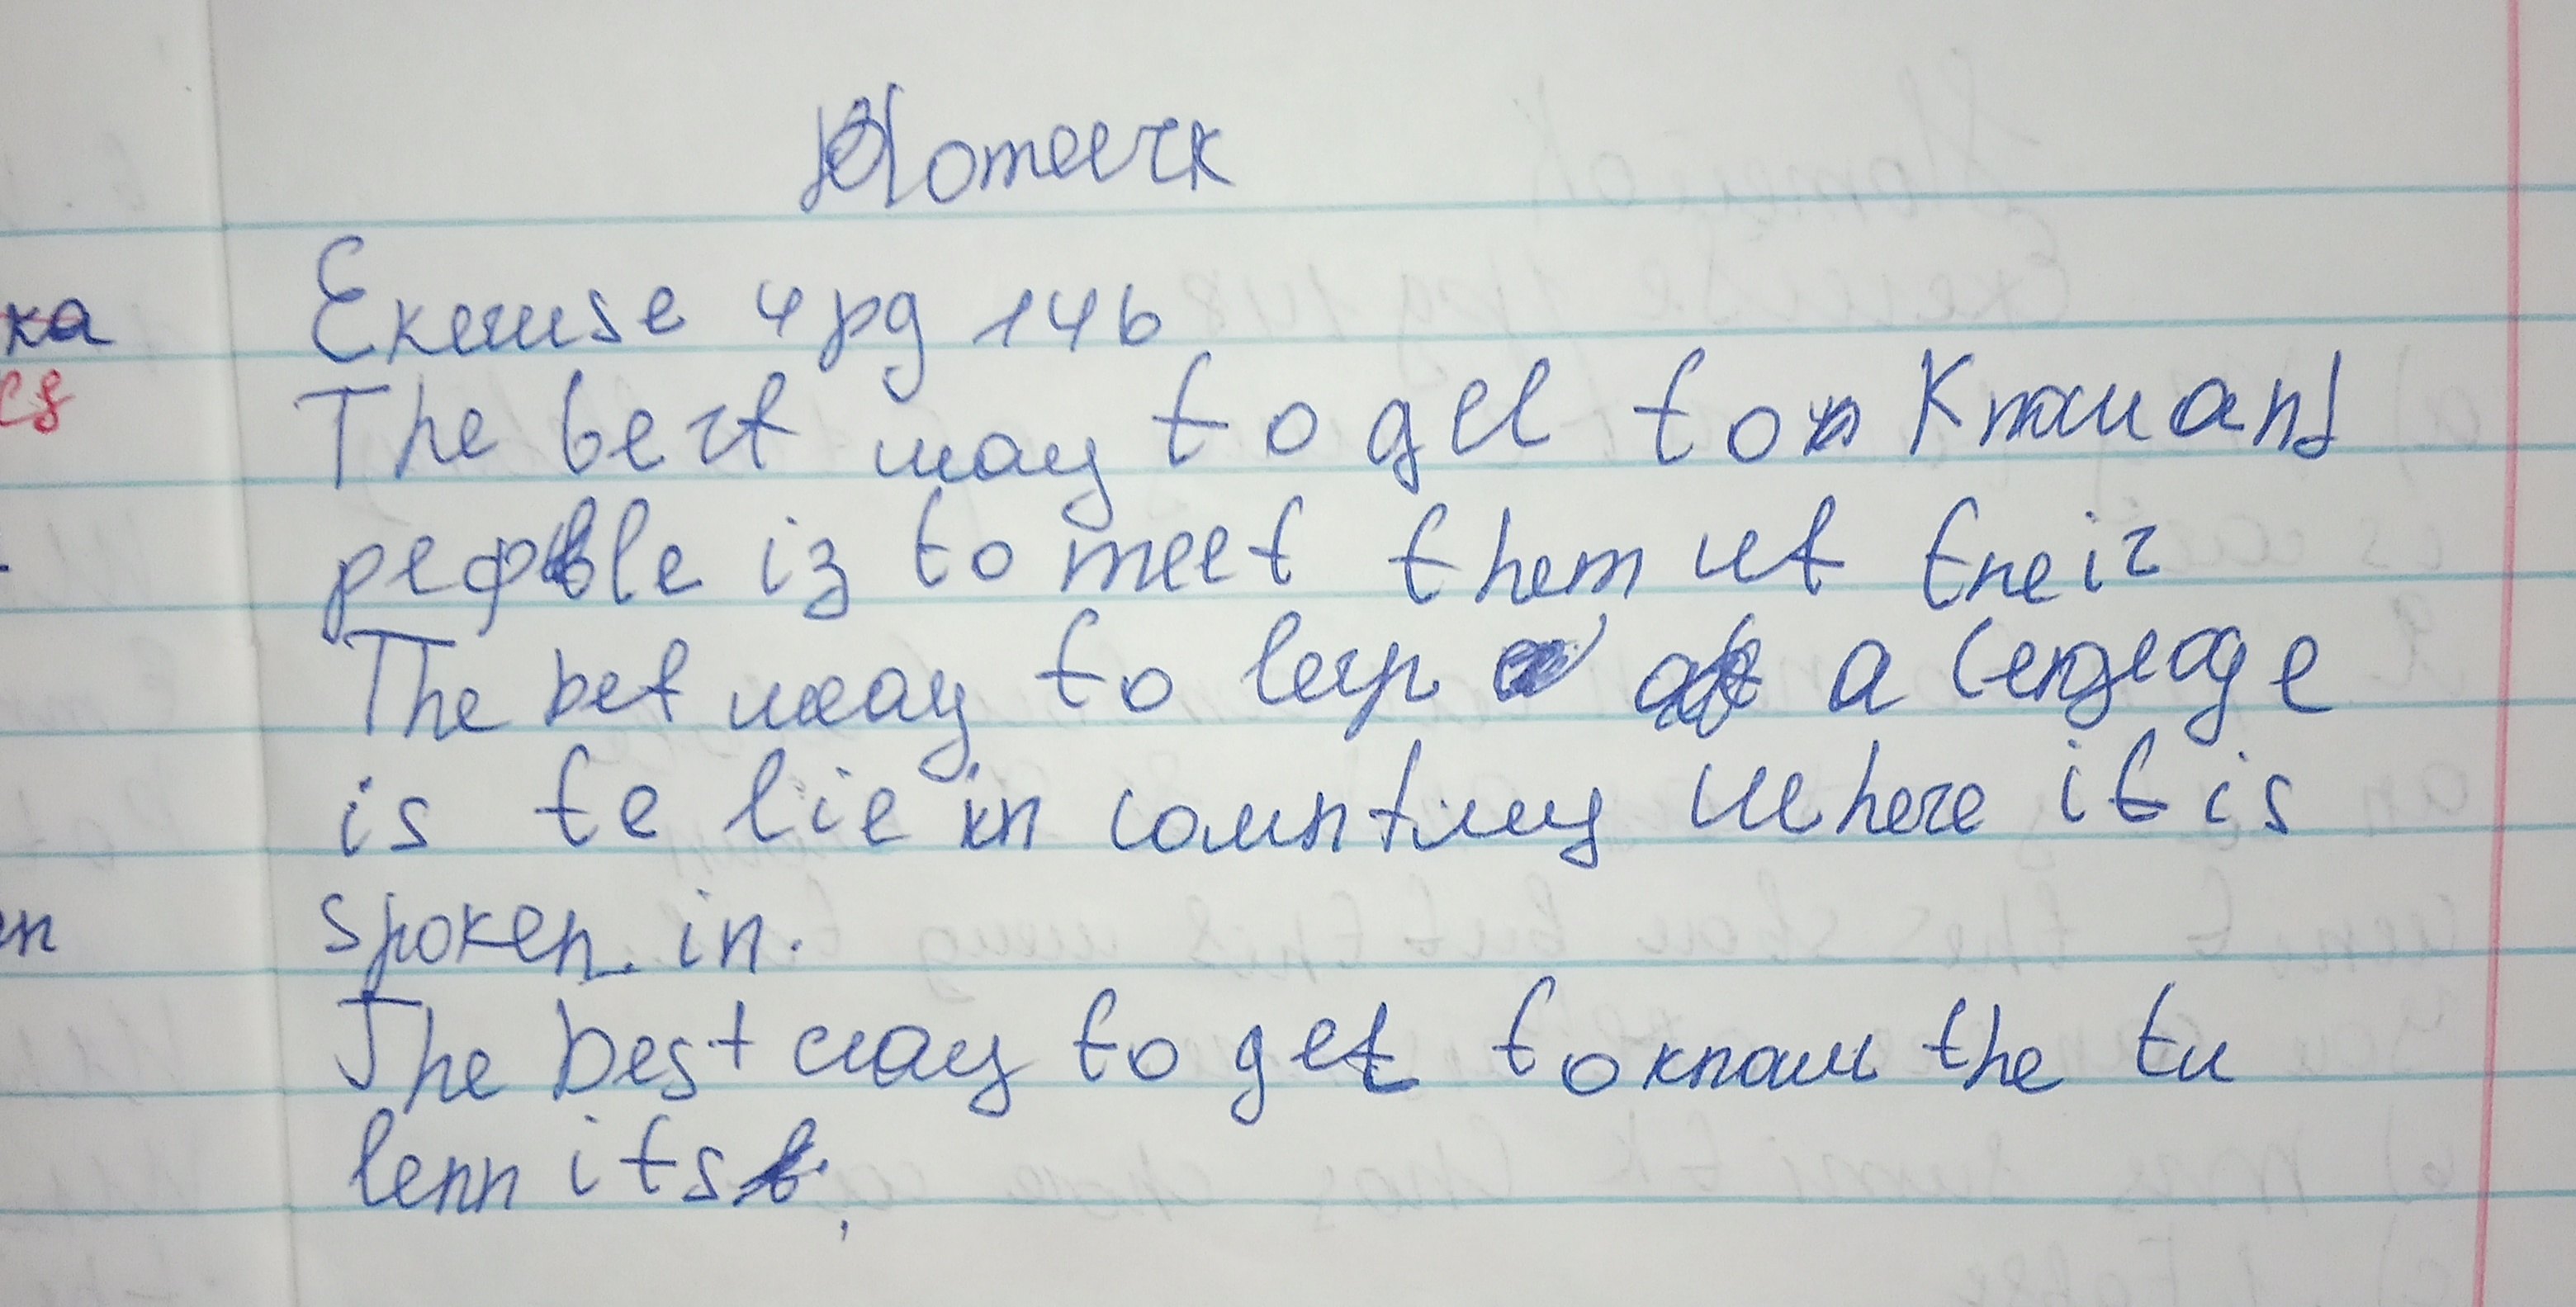 Homewrk
Exercise 4 pg 146
The best way to get to know and
people is to meet them at their
The bet way to lerp a lengeage
is te lie in country where it is
spoken. in.
The best way to get to know the tu
lenn its